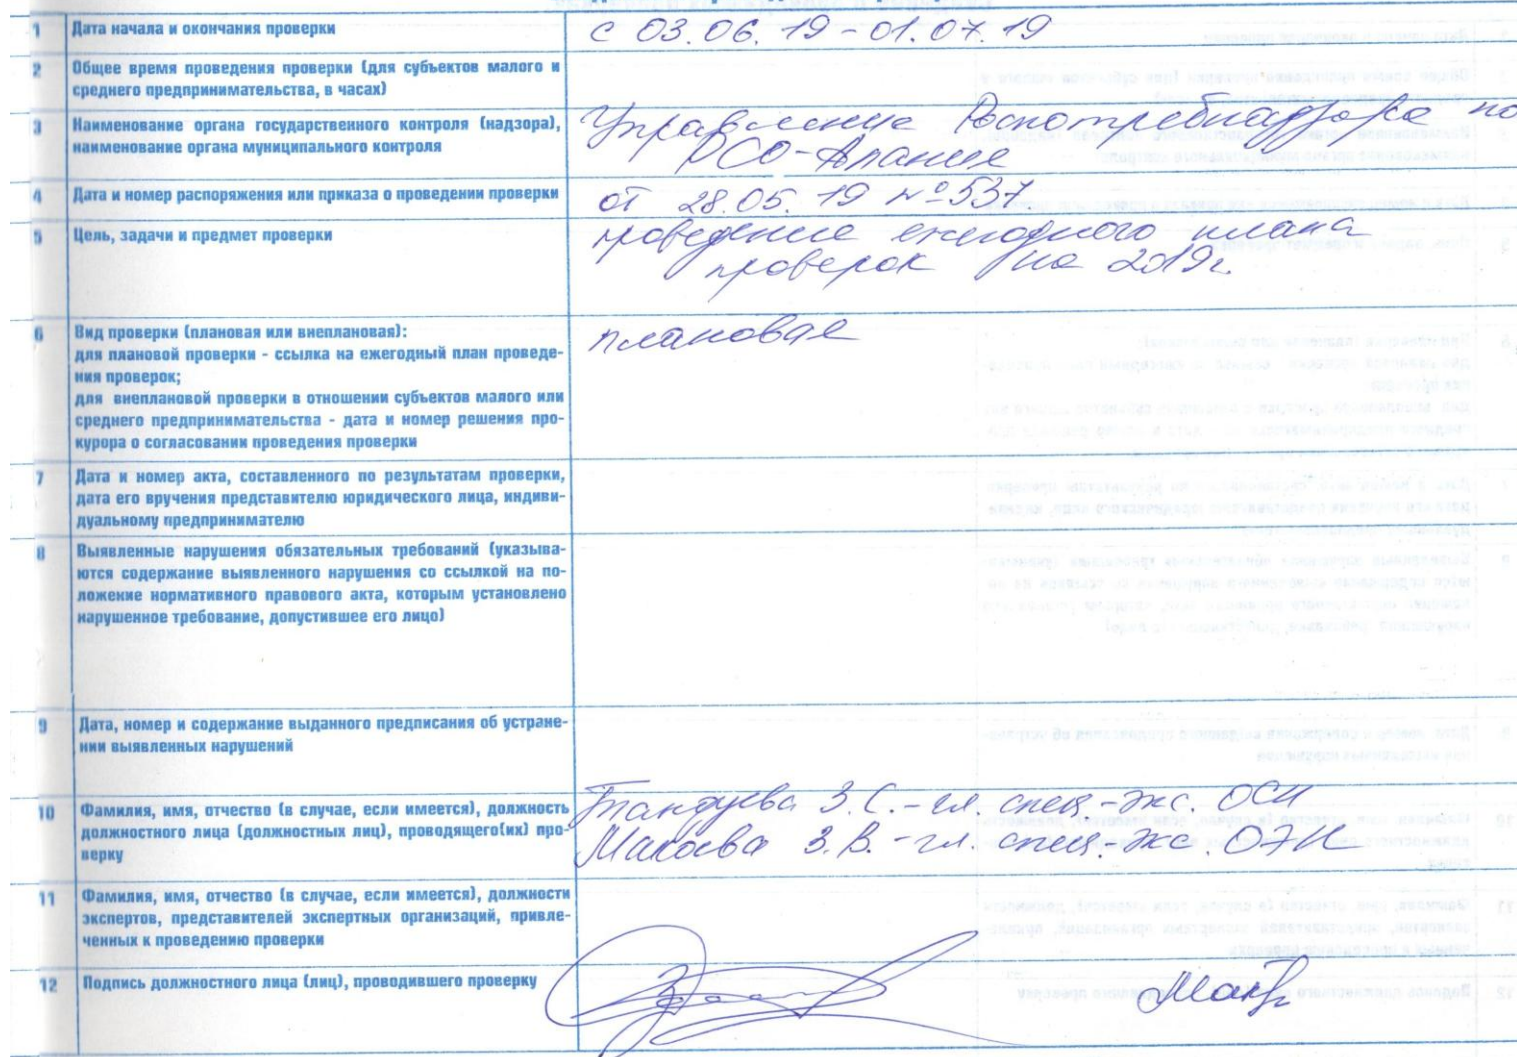 1 Дата начала и окончания проверки с 03.06.19-01.07.19
2 Общее время проведения проверки (для субъектов малого и
среднего предпринимательства, в часах)
3 Наименование органа государственного контроля (надзора), Управление Роспотребнадзора по
наименование органа муниципального контроля РСО-Алания
4 Дата и номер распоряжения или приказа о проведении проверки от 28.05.19 №537
5 Цель, задачи и предмет проверки проведение ежегодного плана
проверок на 2019г.
6 Вид проверки (плановая или внеплановая): плановая
для плановой проверки - ссылка на ежегодный план проведе-
ния проверок;
для внеплановой проверки в отношении субъектов малого или
среднего предпринимательства - дата и номер решения про-
курора о согласовании проведения проверки
7 Дата и номер акта, составленного по результатам проверки,
дата его вручения представителю юридического лица, индиви-
дуальному предпринимателю
8 Выявленные нарушения обязательных требований (указыва-
ются содержание выявленного нарушения со ссылкой на по-
ложение нормативного правового акта, которым установлено
нарушенное требование, допустившее его лицо)
9 Дата, номер и содержание выданного предписания об устране-
нии выявленных нарушений
10 Фамилия, имя, отчество (в случае, если имеется), должность З.С. - гл. спец-экс. ОСН
должностного лица (должностных лиц), проводящего(их) про- З.В. - гл. спец. экс. ОЭН
верку
11 Фамилия, имя, отчество (в случае, если имеется), должности
экспертов, представителей экспертных организаций, привле-
ченных к проведению проверки
12 Подпись должностного лица (лиц), проводившего проверку